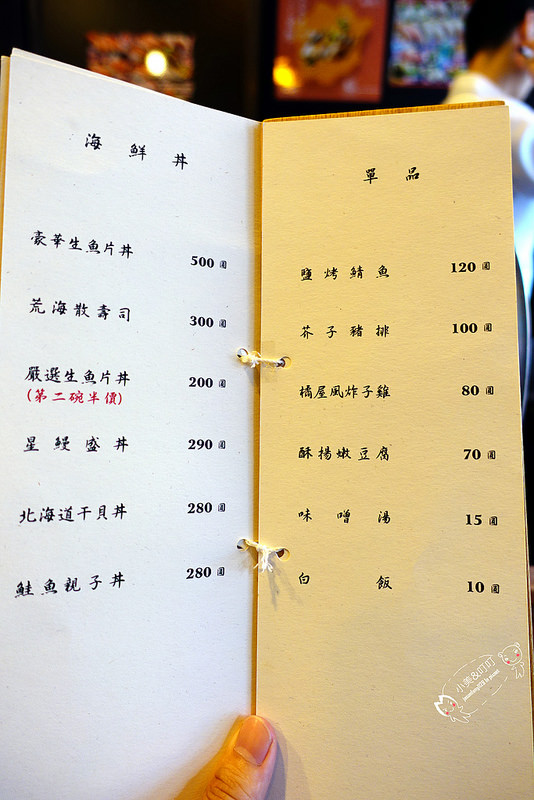 海鮮丼
豪華生魚片丼 500圓
荒海散壽司 300圓
嚴選生魚片丼 200圓
(第二碗半價)
星鰻盛丼 290圓
北海道干貝丼 280圓
鮭魚親子丼 280圓
單品
鹽烤鯖魚 120圓
芥子豬排 100圓
橘屋風炸子雞 80圓
酥揚嫩豆腐 70圓
味噌湯 15圓
白飯 10圓
小美&叮叮